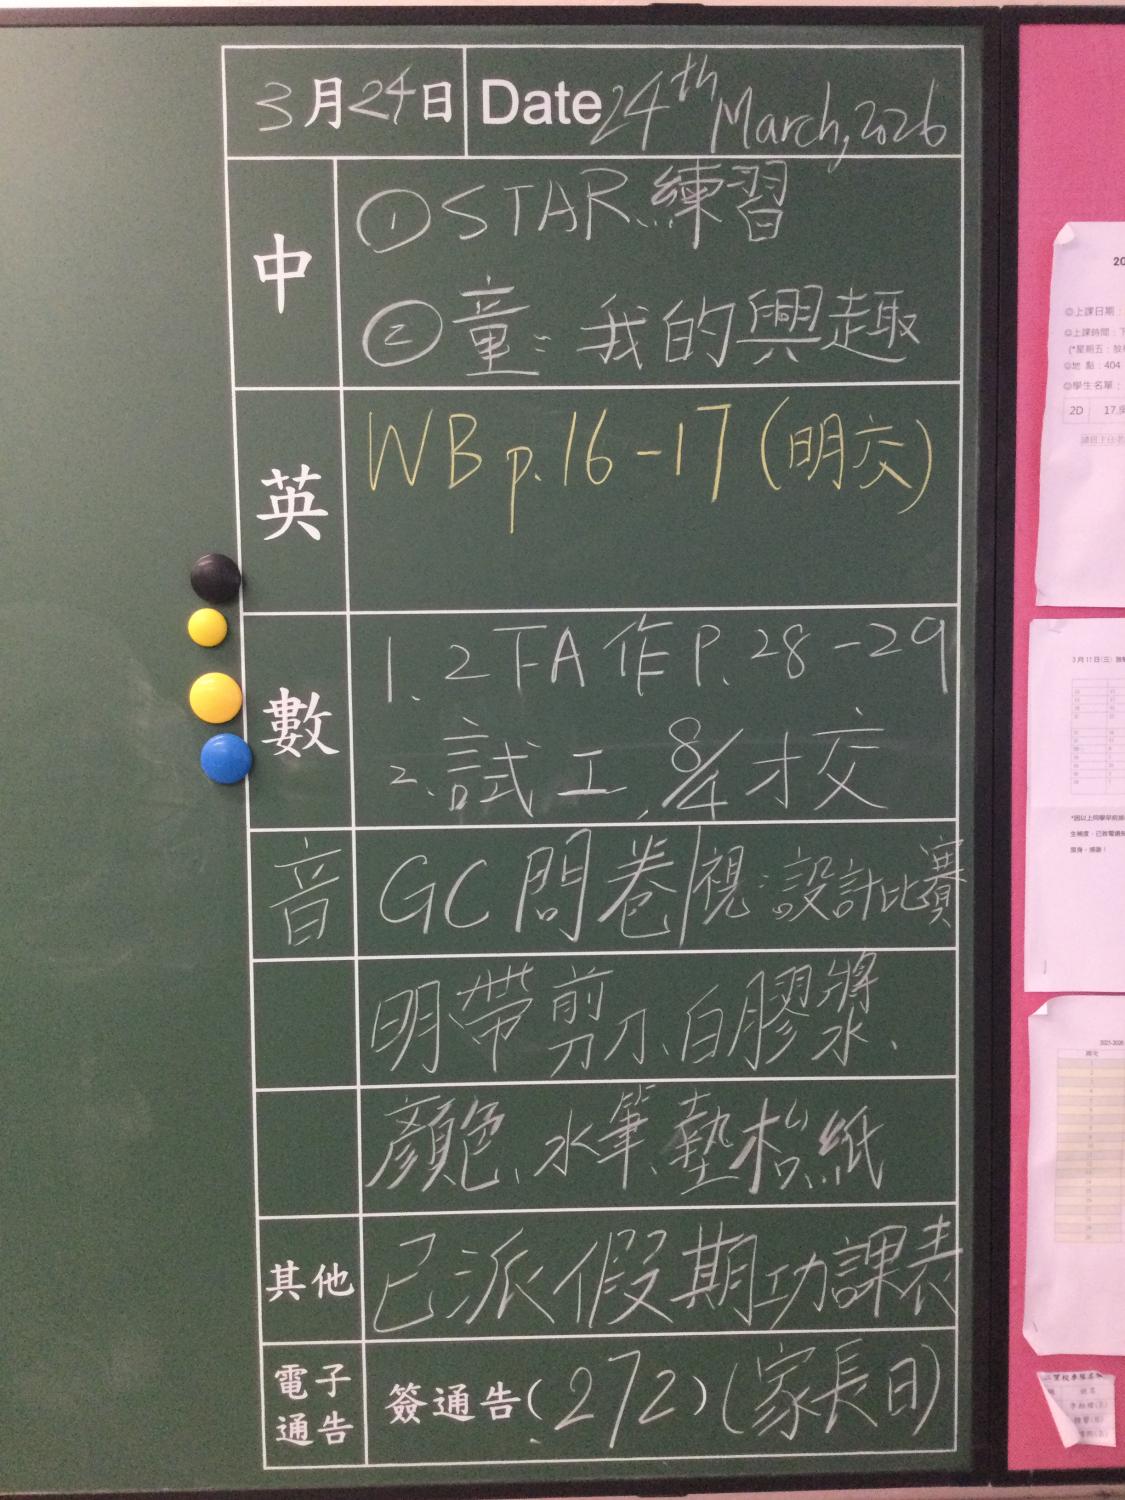 3月24日 Date 24th March, 2026
中
①STAR 練習
②童：我的興趣
英
WB p.16-17 (明交)
數
1. 2TA 作 P.28-29
2. 試工, 8/4 才交
音
GC 問卷/視：設計比賽
明帶剪刀、白膠漿、
顏色、水筆、墊枱紙
其他
已派假期功課表
電子通告
簽通告(272) (家長日)
20
◎上課日期：
◎上課時間：下
(*星期五：放
◎地 點：404
◎學生名單：
2D 17.
3月11日(三)
*因以上同學早前